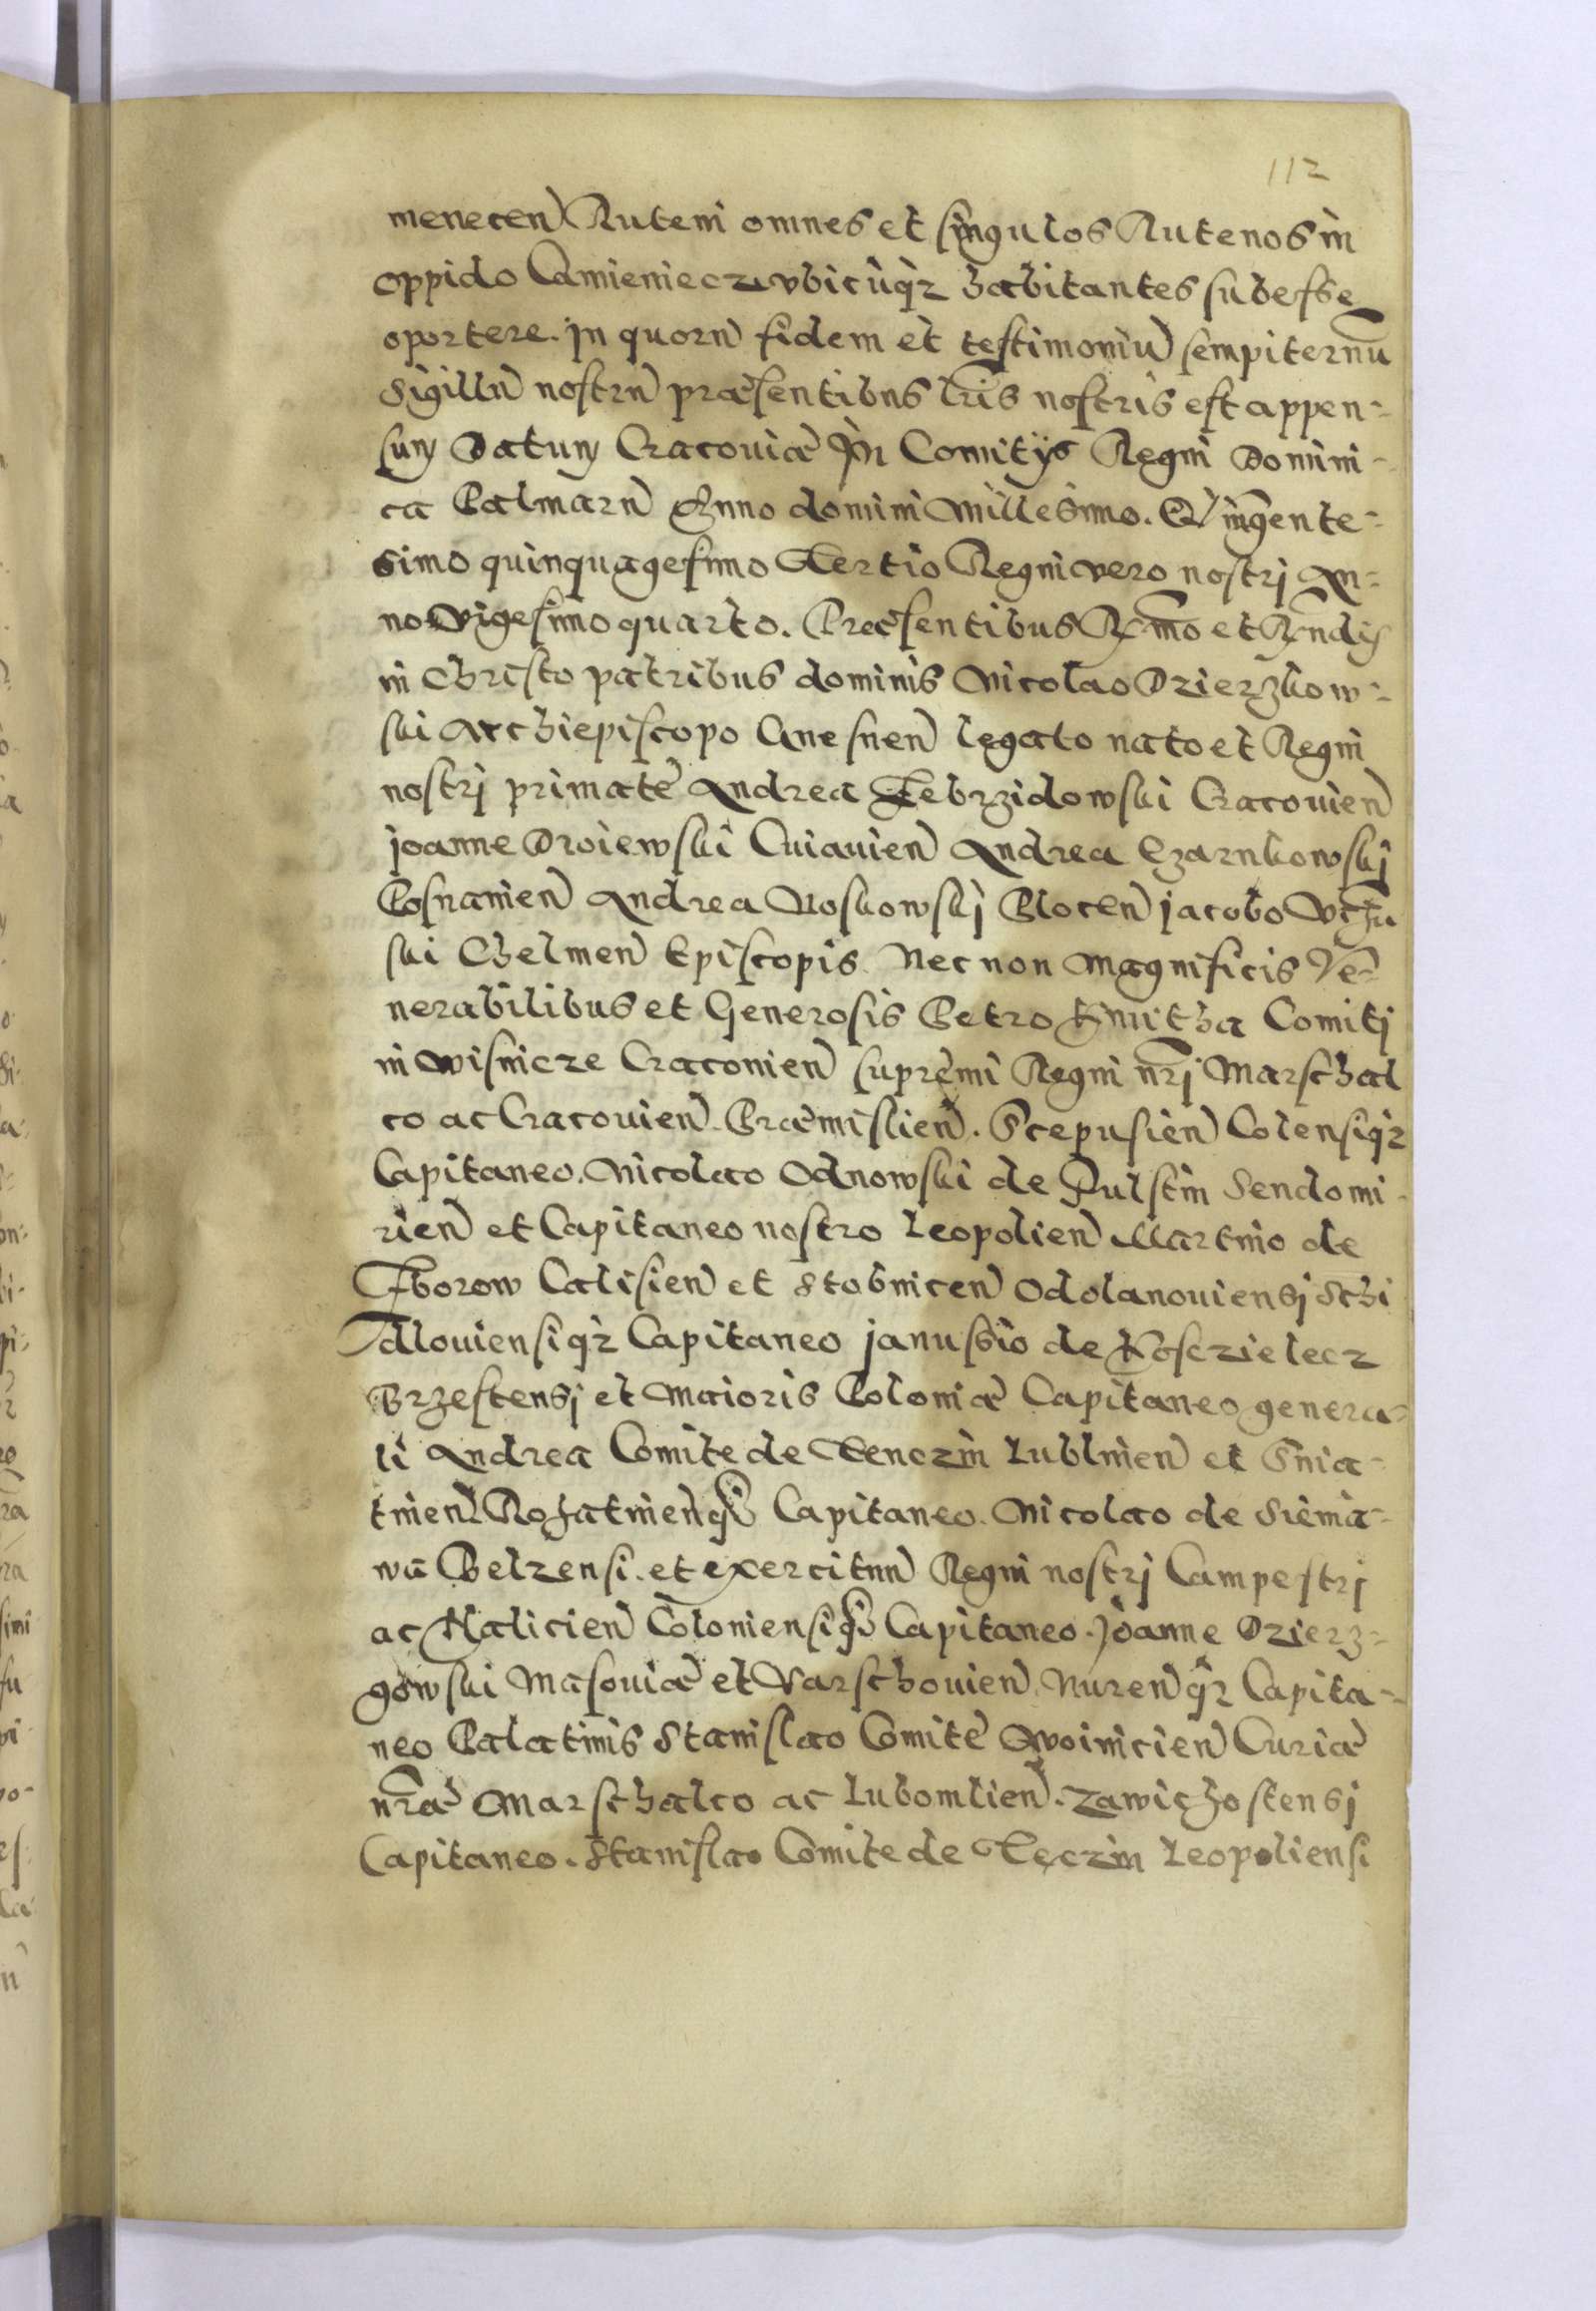 112
menecen Ruteni omnes et singulos Rutenos in
oppido Camieniecz vbicuq3 habitantes subesse
oportere. In quorn fidem et testimoniu sempiternu
Sigilln nostrn præsentibus lris nostris est appen-
sum Datum Cracouiæ In Comitijs Regni Domini-
ca Palmarn Anno domini Millesimo. Qȷngente-
simo quinquagesimo Tertio Regni vero nostrj An-
no Vigesimo quarto. Præsentibus Rmo et Rndis
in Christo patribus dominis Nicolao Dzierzkow-
ski Archiepiscopo Gnesnen legato nato et Regni
nostrj primate Andrea Zebrzidowski Cracouien
Joanne Droiewski Cuiauien Andrea Czarnkowskj
Posnanien Andrea Noskowskj Plocen Jacobo Vchā
ski Chelmen Episcopis Nec non Magnificis Ve-
nerabilibus et Generosis Petro Kmitha Comitj
in Wisnicze Cracouien supremi Regni nrj Marschal
co ac Cracouien. Præmislien. Scepusien Colensiq3
Capitaneo. Nicolao Odnowski de Fulstin Sendomi-
rien et Capitaneo nostro Leopolien Martino de
Zborow Calisien et Stobnicen Odolanouiensj Schi
dlouiensiq3 Capitaneo Janussio de Kosczielecz
Brzestensj et Maioris Poloniæ Capitaneo genera-
li Andrea Comite de Tenczin Lublinien et Snia-
tinen Rohatinenq3 Capitaneo. Nicolao de Siemia-
wā Belzensi. et exercitun Regni nostrj Campestrj
ac Halicien Coloniensiq3 Capitaneo. Joanne Dzierz-
gowski Masouiæ et Varschouien. Nurenq3 Capita-
neo Palatinis Stanislao Comite Woinicien Curiæ
nræ Marschalco ac Lubomlien. Zawichostensj
Capitaneo. Stanislao Comite de Tęczin Leopoliensi